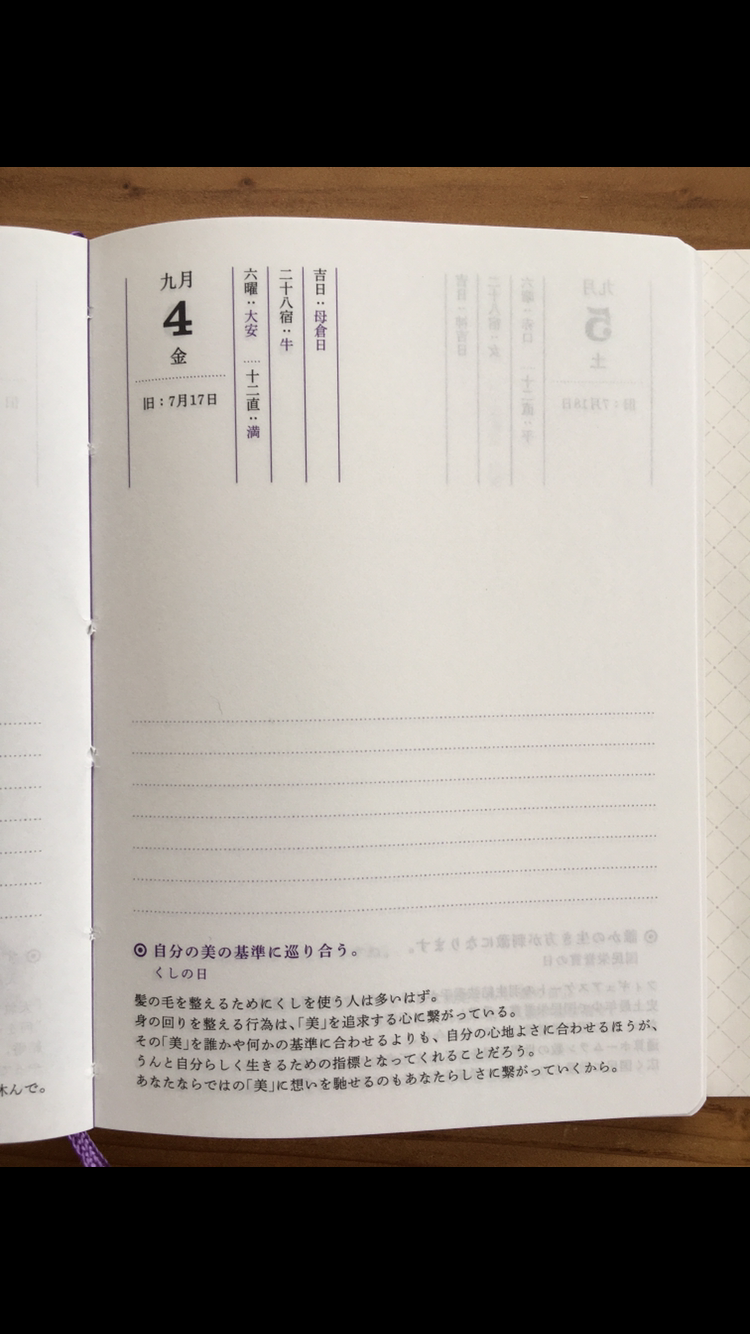 九月
4
金
旧：7月17日
六曜：大安 …… 十二直：満
二十八宿：牛
吉日：母倉日
自分の美の基準に巡り合う。
くしの日
髪の毛を整えるためにくしを使う人は多いはず。
身の回りを整える行為は、「美」を追求する心に繋がっている。
その「美」を誰かや何かの基準に合わせるよりも、自分の心地よさに合わせるほうが、
うんと自分らしく生きるための指標となってくれることだろう。
あなたならではの「美」に想いを馳せるのもあなたらしさに繋がっていくから。
休んで。